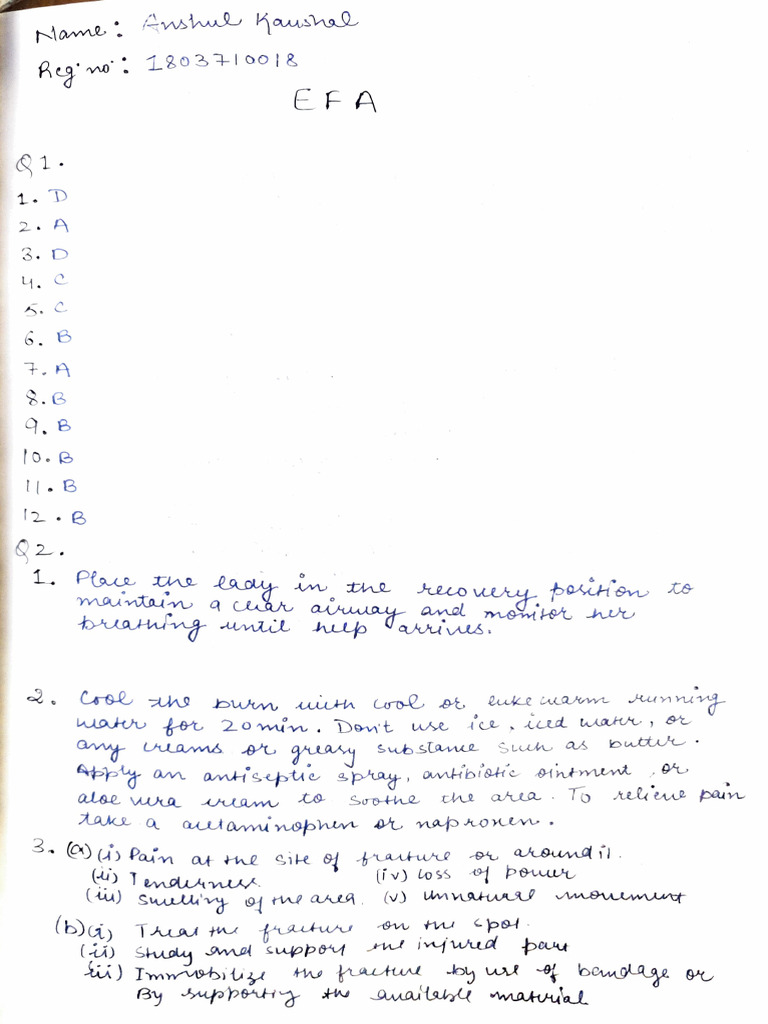 Name: Anshul Kaushal
Reg. no: 1803710018
E F A
Q 1.
1. D
2. A
3. D
4. C
5. C
6. B
7. A
8. B
9. B
10. B
11. B
12. B
Q 2.
1. Place the lady in the recovery position to
maintain a clear airway and monitor her
breathing until help arrives.
2. Cool the burn with cool or lukewarm running
water for 20 min. Don't use ice, iced water, or
any creams or greasy substance such as butter.
Apply an antiseptic spray, antibiotic ointment, or
aloe vera cream to soothe the area. To relieve pain
take a acetaminophen or naproxen.
3. (a) (i) Pain at the site of fracture or around it.
(ii) Tenderness. (iv) Loss of power
(iii) Swelling of the area. (v) Unnatural movement
(b) (i) Treat the fracture on the spot.
(ii) Study and support the injured part
(iii) Immobilize the fracture by use of bandage or
By supporting the available material